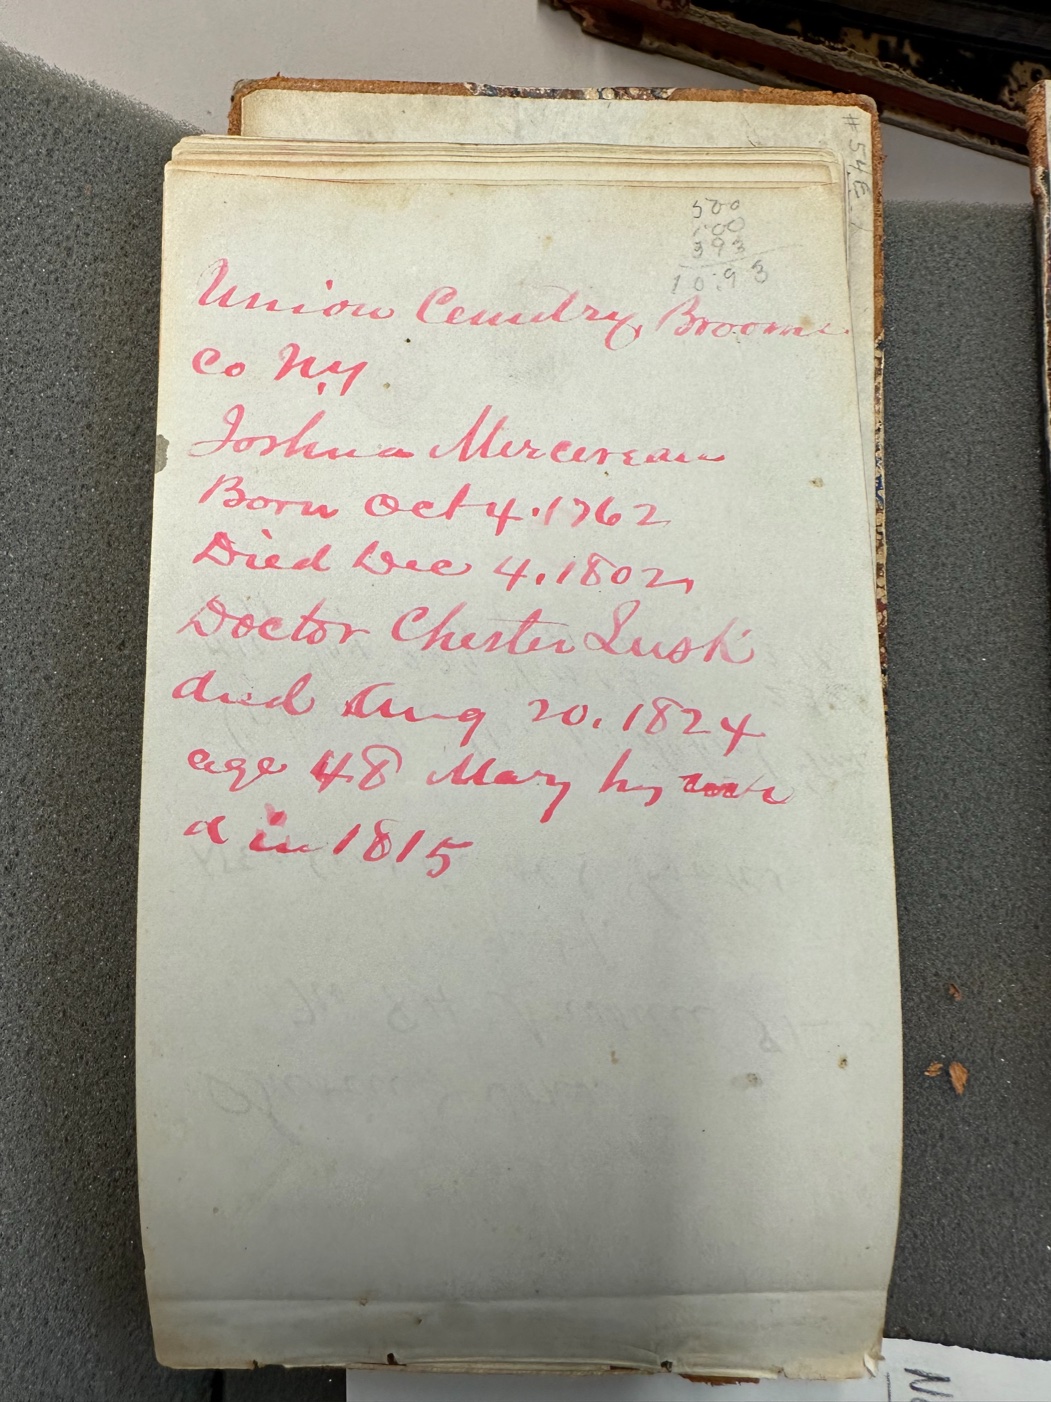 # 54 E
500
100
393
1093
Union Cemetry, Broome
Co N.y
Joshua Mercereau
Born Oct 4.1762
Died Dec 4.1802,
Doctor Chester Lusk
died Aug 20. 1824
age 48 Mary his
d in 1815